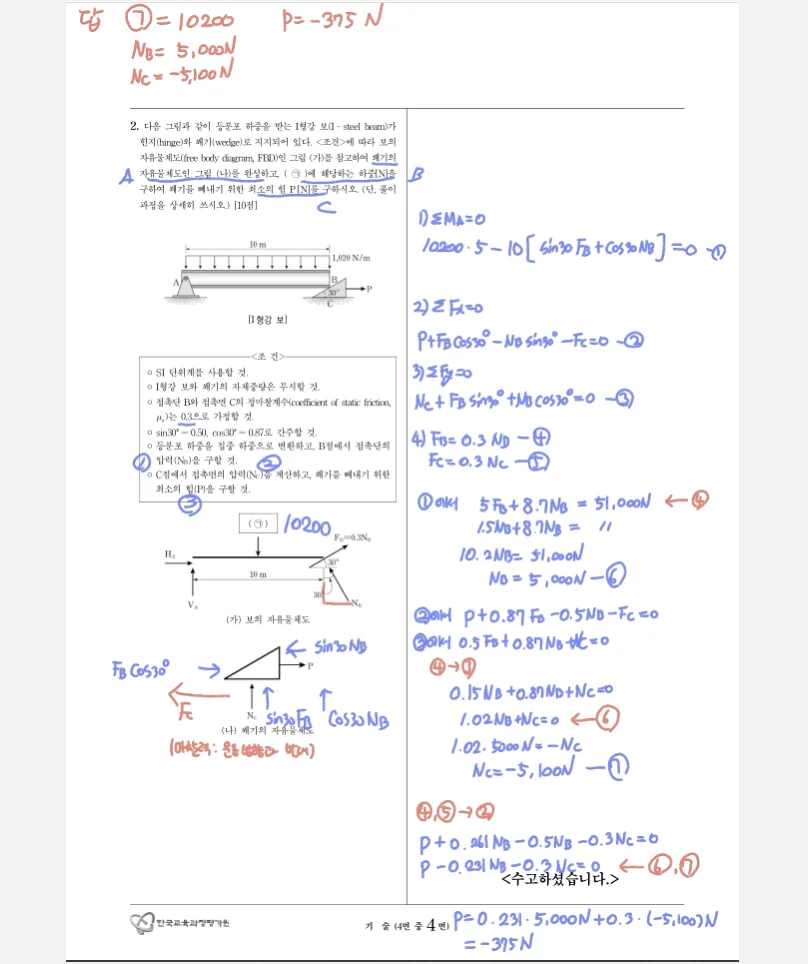 답 ⑦ = 10200 P = -375 N
N_B = 5,000N
N_C = -5,100N
2. 다음 그림과 같이 등분포 하중을 받는 I형강 보(I-steel beam)가
힌지(hinge)와 쐐기(wedge)로 지지되어 있다. <조건>에 따라 보의
자유물체도(free body diagram, FBD)인 그림 (가)를 참고하여 쐐기의
A 자유물체도인 그림 (나)를 완성하고, ( ㉠ )에 해당하는 하중[N]을 B
구하여 쐐기를 빼내기 위한 최소의 힘 P[N]를 구하시오. (단, 풀이
과정을 상세히 쓰시오.) [10점]
C
10 m
1,020 N/m
A
B
30°
P
C
[I형강 보]
<조 건>
○ SI 단위계를 사용할 것.
○ I형강 보와 쐐기의 자체중량은 무시할 것.
○ 접촉단 B와 접촉면 C의 정마찰계수(coefficient of static friction,
μs)는 0.3으로 가정할 것.
○ sin30°=0.50, cos30°=0.87로 간주할 것.
○ 등분포 하중을 집중 하중으로 변환하고, B점에서 접촉단의
① 압력(N_B)을 구할 것. ②
○ C점에서 접촉면의 압력(N_C)을 계산하고, 쐐기를 빼내기 위한
최소의 힘(P)을 구할 것.
③
( ㉠ ) 10200
F_B=0.3N_B
H_A
30°
10 m
30°
V_A
N_B
(가) 보의 자유물체도
sin30 N_B
F_B cos30°
P
F_C
N_C
sin30 F_B
cos30 N_B
(나) 쐐기의 자유물체도
(마찰력: 운동 방향과 반대)
1) ΣM_A=0
10200·5 - 10[sin30 F_B + cos30 N_B] = 0 -①
2) ΣF_x=0
P+F_B cos30° - N_B sin30° - F_C = 0 -②
3) ΣF_y=0
N_C + F_B sin30° + N_B cos30° = 0 -③
4) F_B = 0.3 N_B -④
F_C = 0.3 N_C -⑤
①에서 5F_B + 8.7N_B = 51,000N ← ④
1.5N_B + 8.7N_B = 〃
10.2N_B = 51,000N
N_B = 5,000N -⑥
②에서 P + 0.87 F_B - 0.5N_B - F_C = 0
③에서 0.5 F_B + 0.87 N_B + N_C = 0
④→③
0.15N_B + 0.87N_B + N_C = 0
1.02N_B + N_C = 0 ← ⑥
1.02·5000N = -N_C
N_C = -5,100N -⑦
④,⑤→②
P + 0.261 N_B - 0.5N_B - 0.3N_C = 0
P - 0.231 N_B - 0.3 N_C = 0 ← ⑥,⑦
<수고하셨습니다.>
한국교육과정평가원
기 술 (4면 중 4면)
P = 0.231·5,000N + 0.3·(-5,100)N
= -375N